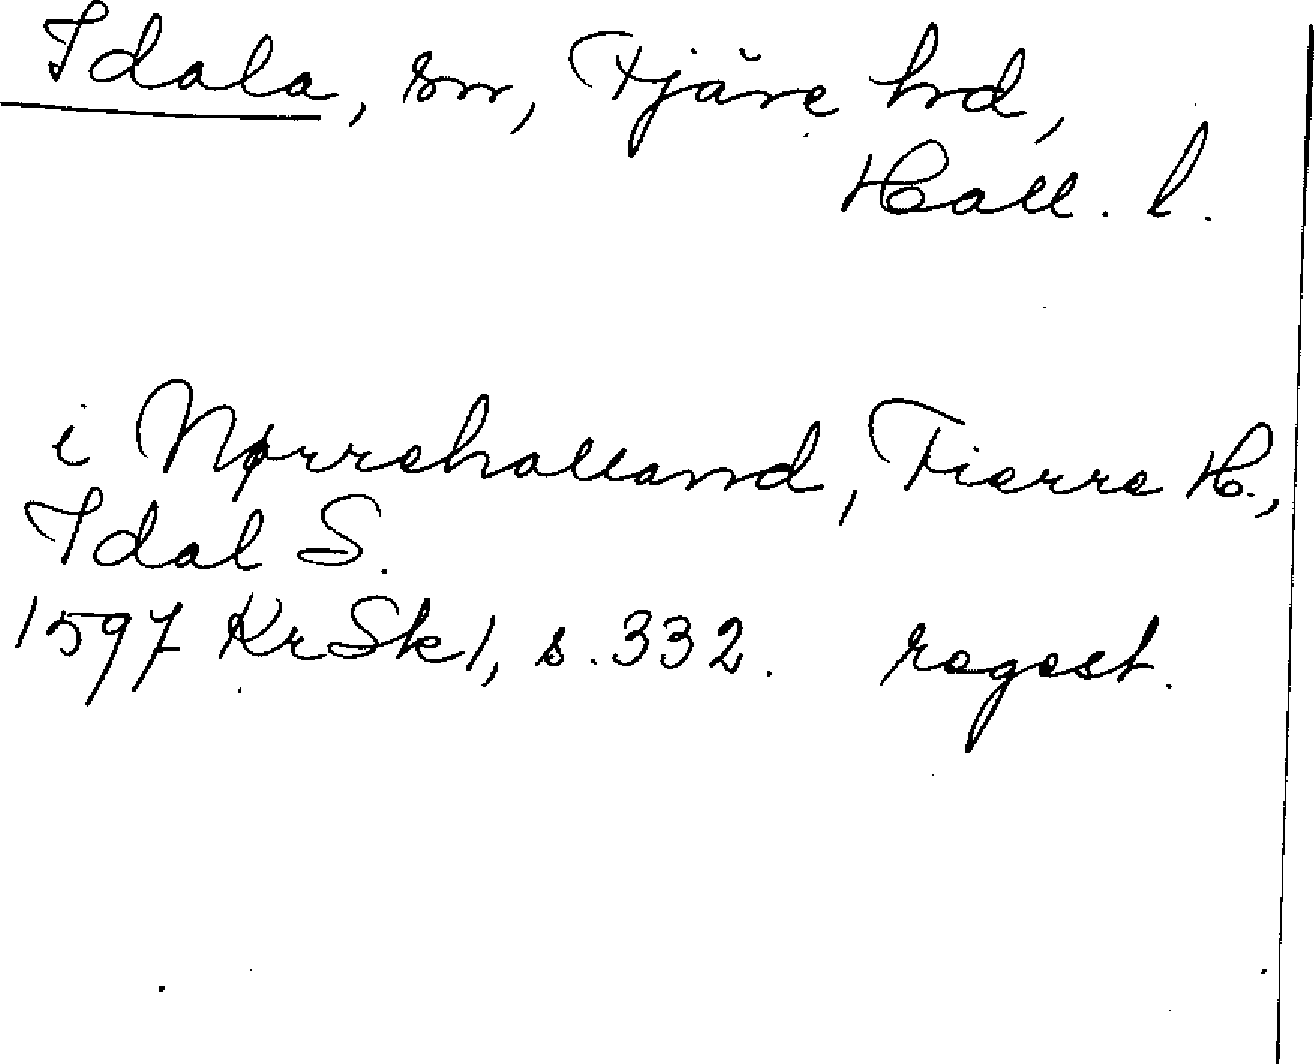 Idala, sn, Fjäre hd,
Hall. l.
i Nørrehalland, Fierre H.,
Idal S.
1597 KrSk1, s. 332. regest.